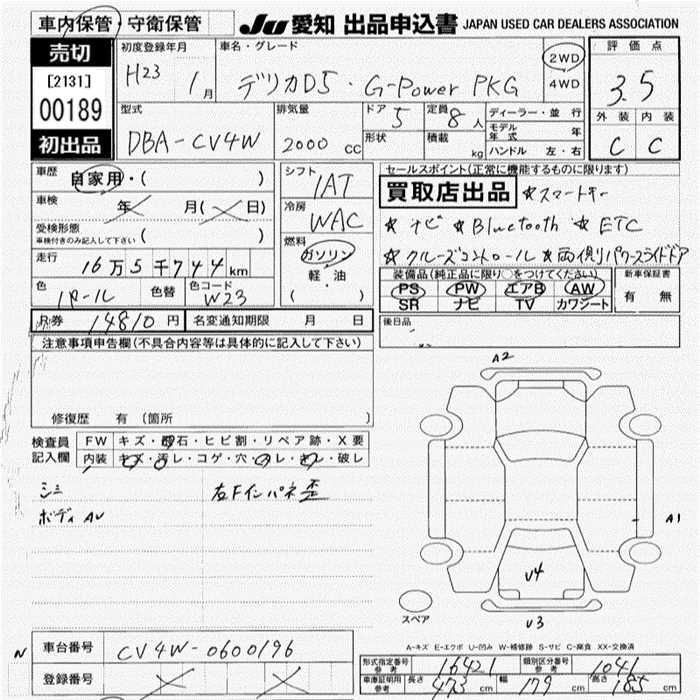 車内保管・守衛保管
JU 愛知 出品申込書 JAPAN USED CAR DEALERS ASSOCIATION
売切
[2131]
00189
初出品
初度登録年月
H23 1月
車名・グレード
デリカD5・G-Power PKG
2WD
4WD
評価点
3.5
外装 内装
C C
型式
DBA-CV4W
排気量
2000 cc
ドア 5
形状
定員 8人
積載 kg
ディーラー・並行
モデル年式 年
ハンドル 左・右
車歴
自家用・( )
車検
年 月( 日)
受検形態
車検付きのみ記入して下さい ( )
走行
16万5千744km
色
パール
色替
色コード
W23
シフト
IAT
冷房
WAC
燃料
ガソリン
軽・油
( )
セールスポイント(正常に機能するものに限ります)
買取店出品 ☆スマートキー
☆ナビ ☆Bluetooth ☆ETC
☆クルーズコントロール ☆両側パワースライドドア
装備品(純正品に限り○をつけてください)
PS PW エアB AW
SR ナビ TV カワシート
新車保証書
有 無
R券 14810円 名変通知期限 月 日
後日品
注意事項申告欄(不具合内容等は具体的に記入して下さい)
修復歴 有(箇所 )
検査員記入欄
FW キズ・飛石・ヒビ割・リペア跡・X要
内装 キズ・汚レ・コゲ・穴・スレ・切レ・破レ
シミ 右Fインパネ歪
ボディAU
A2
A1
U4
U3
スペア
A-キズ E-エクボ U-凹み W-補修跡 S-サビ C-腐食 XX-交換済
N 車台番号 CV4W-0600196
登録番号
形式指定番号 参考 16421
類別区分番号 参考 1041
車庫証明用 参考 長さ 473 cm 幅 179 cm 高さ 185 cm